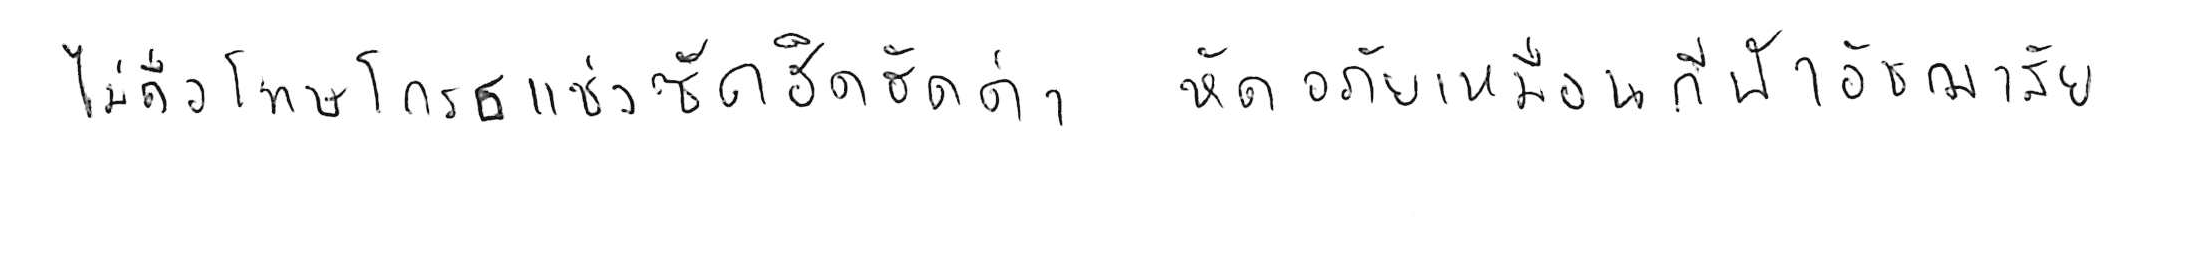 ไม่ถือโทษโกรธแช่งซัดฮึดฮัดด่า หัดอภัยเหมือนกีฬาอัชฌาสัย